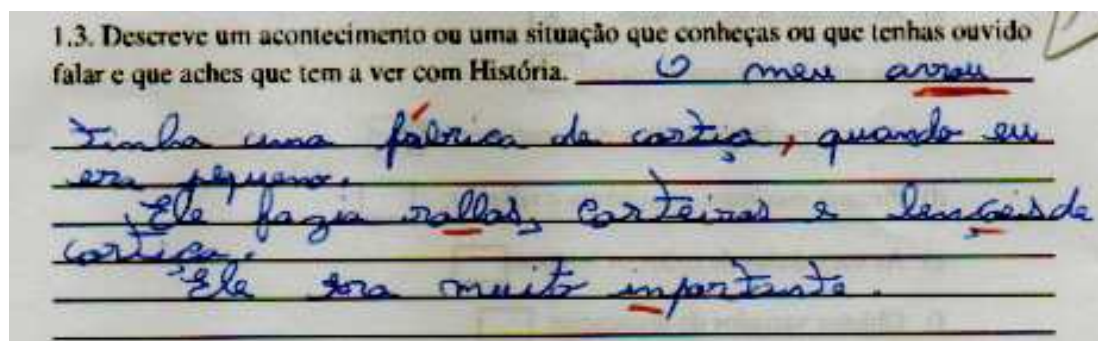 1.3. Descreve um acontecimento ou uma situação que conheças ou que tenhas ouvido
falar e que aches que tem a ver com História. O meu avrou
tinha uma fábrica de cortiça, quando eu
era pequeno.
Ele fazia rollas, carteiras e lençoeis de
cortiça.
Ele era muito inportante.